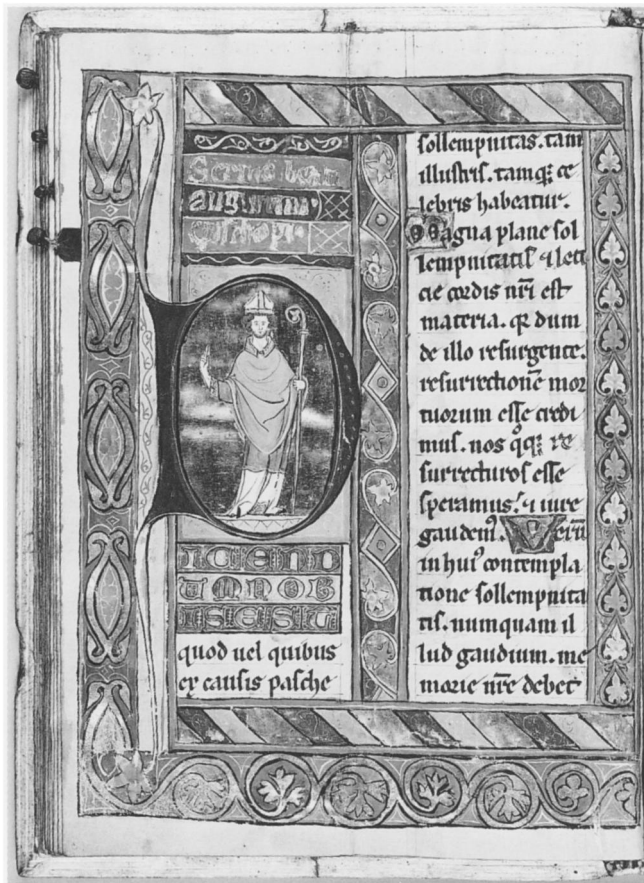 Sermo beati
augustini
episcopi.
D
ICEND
UM NOB
IS EST
quod uel quibus
ex causis pasche
sollempnitas. tam
illustris. tamq; ce
lebris habeatur.
Magna plane sol
lempnitatis ⁊ leti
cie cordis nr̄i est
materia. qr dum
de illo resurgente.
resurrectionē mor
tuorum esse credi
mus. nos qͦq; re
surrecturos esse
speramus. ⁊ iure
gaudemꝰ. Verū
in huiꝰ contempla
tione sollempnita
tis. numquam il
lud gaudium. me
morie nr̄e debet